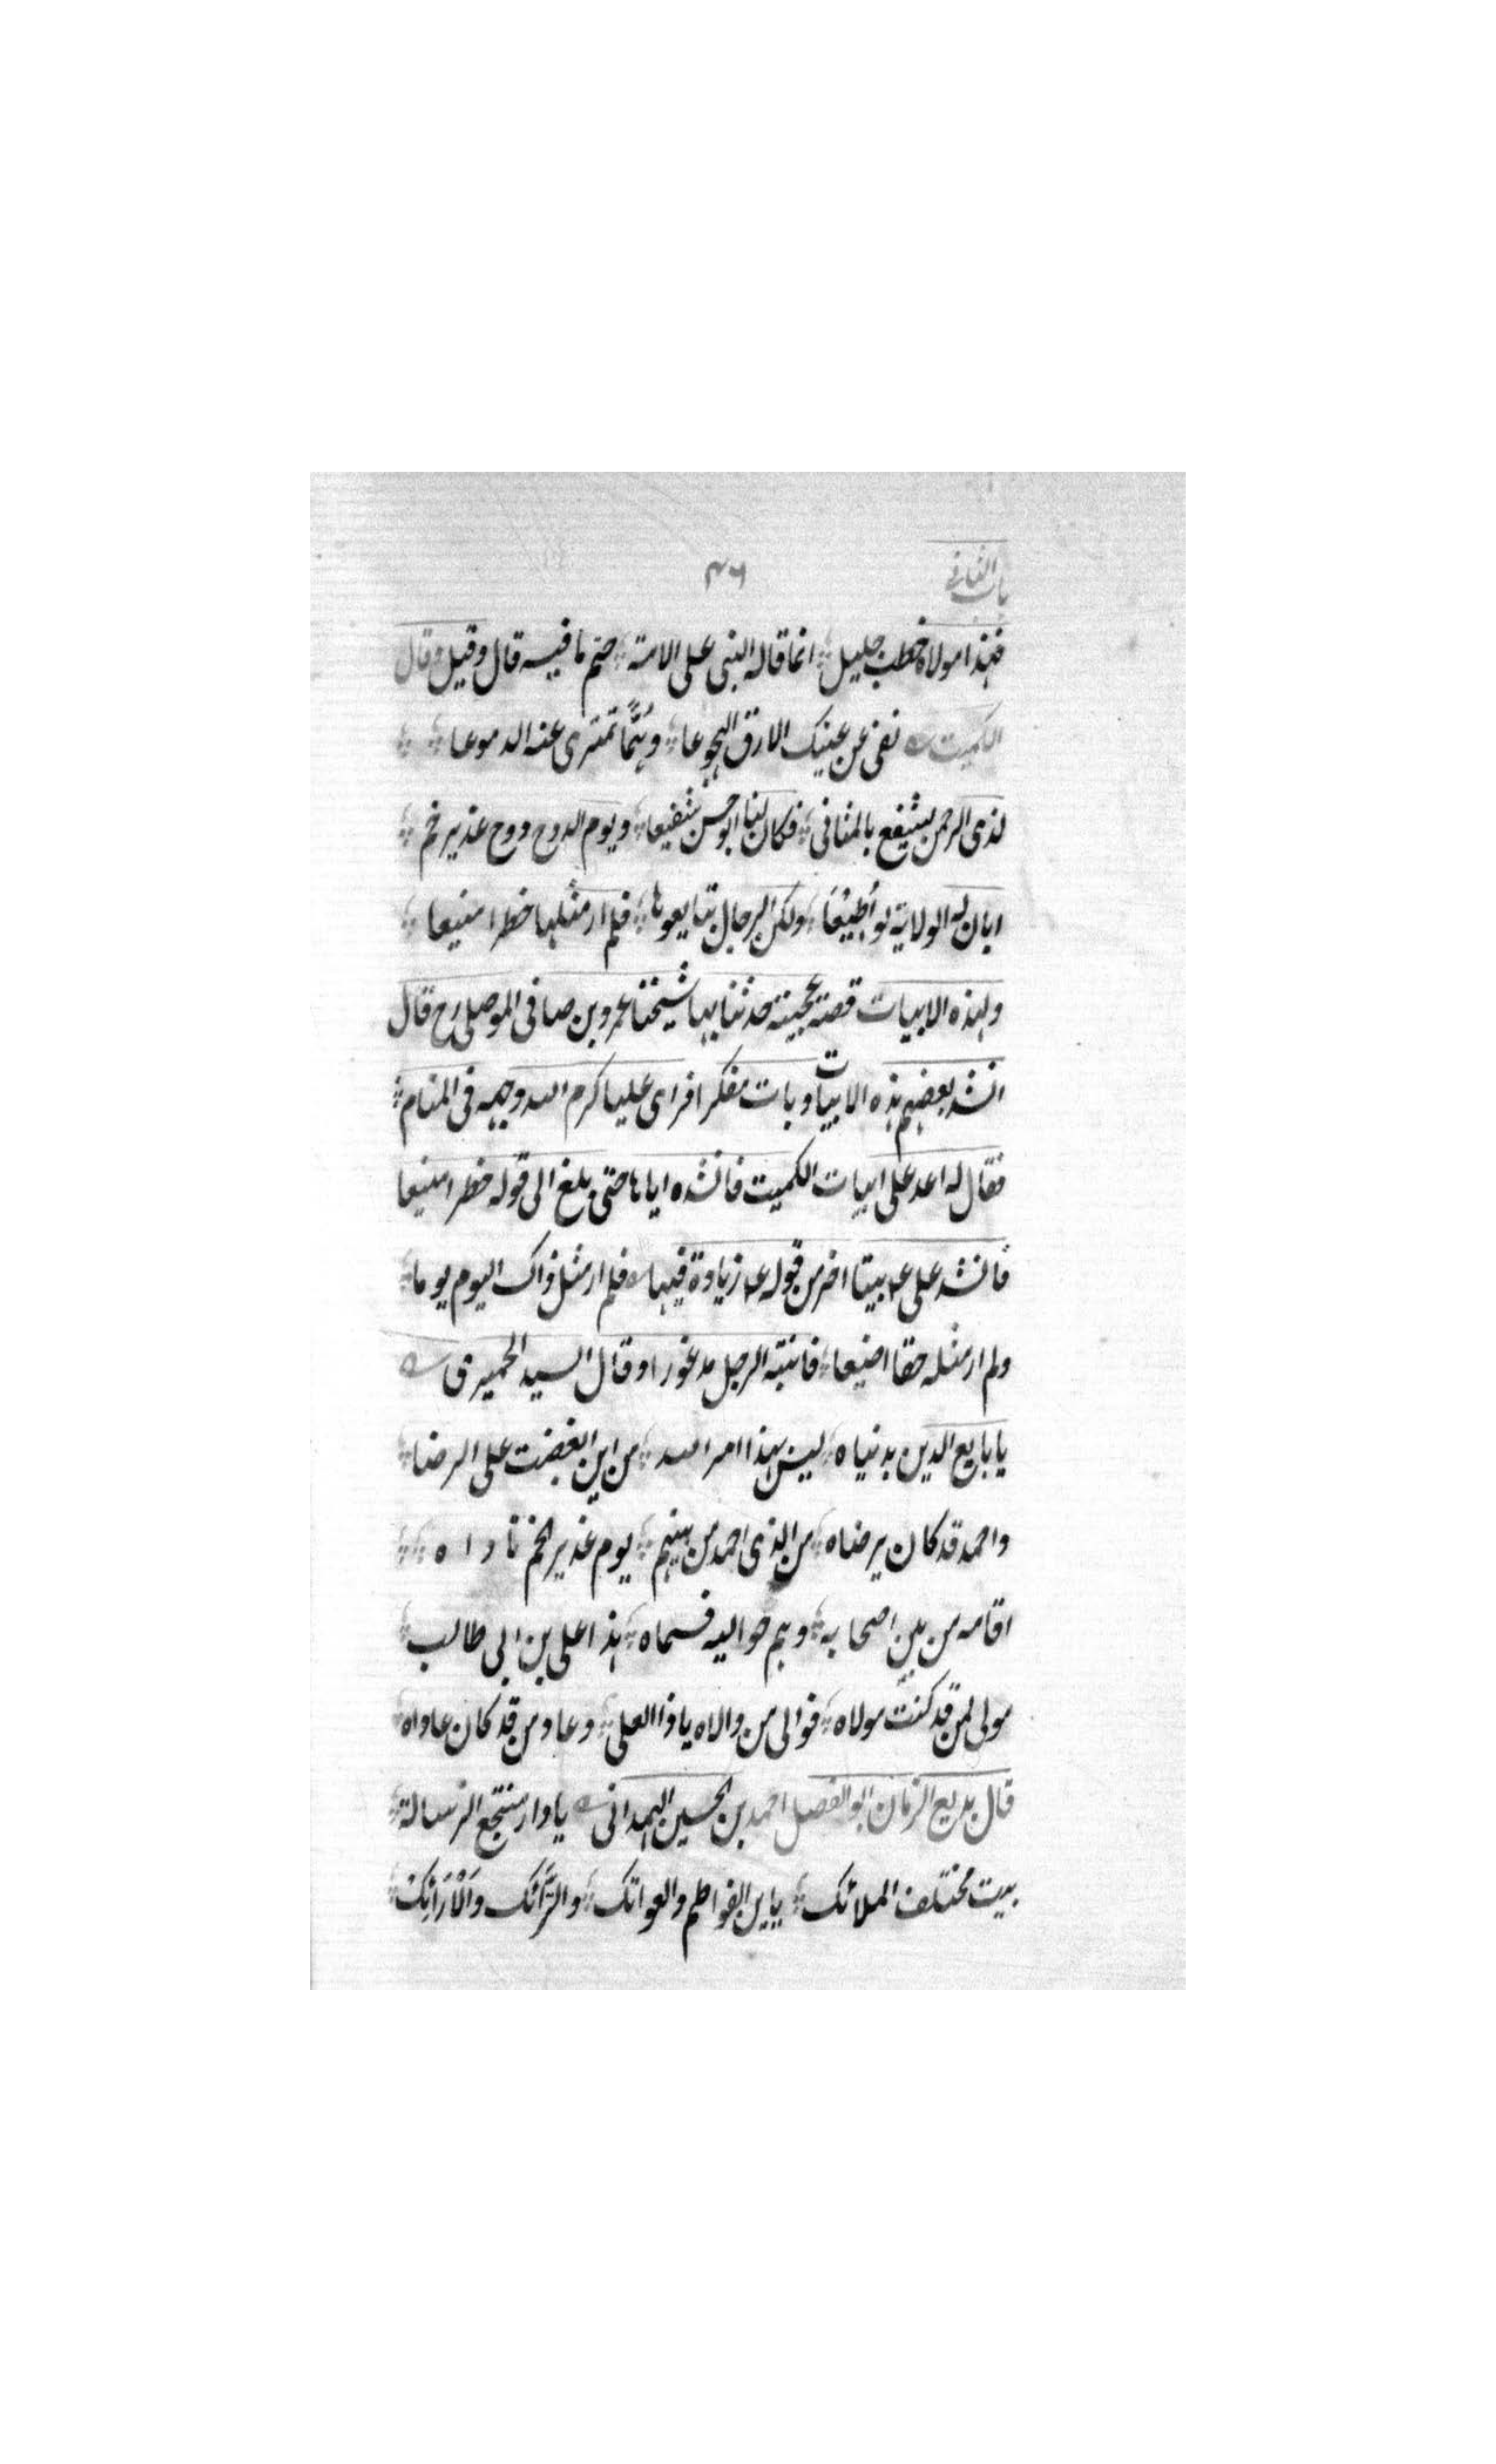 باب الثانی
۴۶
فهذا مولاه خطب جليل انما قاله النبی علی الامة حتم ما فيه قال وقيل وقال
الكميت نفی عن عينك الارق الهجوعا وهمًّا تمتری عنه الدموعا
لذی الرحمن يشفع بالمثانی فكان لنا ابو حسن شفيعا ويوم الدوح دوح غدير خم
ابان له الولاية لو اُطيعَا ولكن الرجال تبايعوها فلم ار مثلها خطرا منيعا
ولهذه الابيات قصة عجيبة حدثنا بها شيخنا عمرو بن صافی الموصلی رح قال
انشد بعضهم هذه الابيات وبات مفكرا فرای عليا كرم الله وجهه فی المنام
فقال له اعد علی ابيات الكميت فانشده اياها حتی بلغ الی قوله خطرا منيعا
فانشد علی ع بيتا اخر من قوله ع زيادة فيها فلم ار مثل ذاك اليوم يوما
ولم ار مثله حقا اضيعا فانتبه الرجل مذعورا وقال السيد الحميری
يا بايع الدين بدنياه ليس بهذا امر الله من اين ابغضت علی الرضا
واحمد قد كان يرضاه من الذی احمد من بينهم يوم غدير الخم ناداه
اقامه من بين اصحابه وهم حواليه فسماه هذا علی بن ابی طالب
مولی لمن قد كنت مولاه فوالی من والاه يا ذا العلی وعاد من قد كان عاداه
قال بديع الزمان ابو الفضل احمد بن الحسين الهمدانی يا دار منتجع الرسالة
بيت مختلف الملائك يا بن الفواطم والعواتك والتَّرَائك والْاَرَائِك